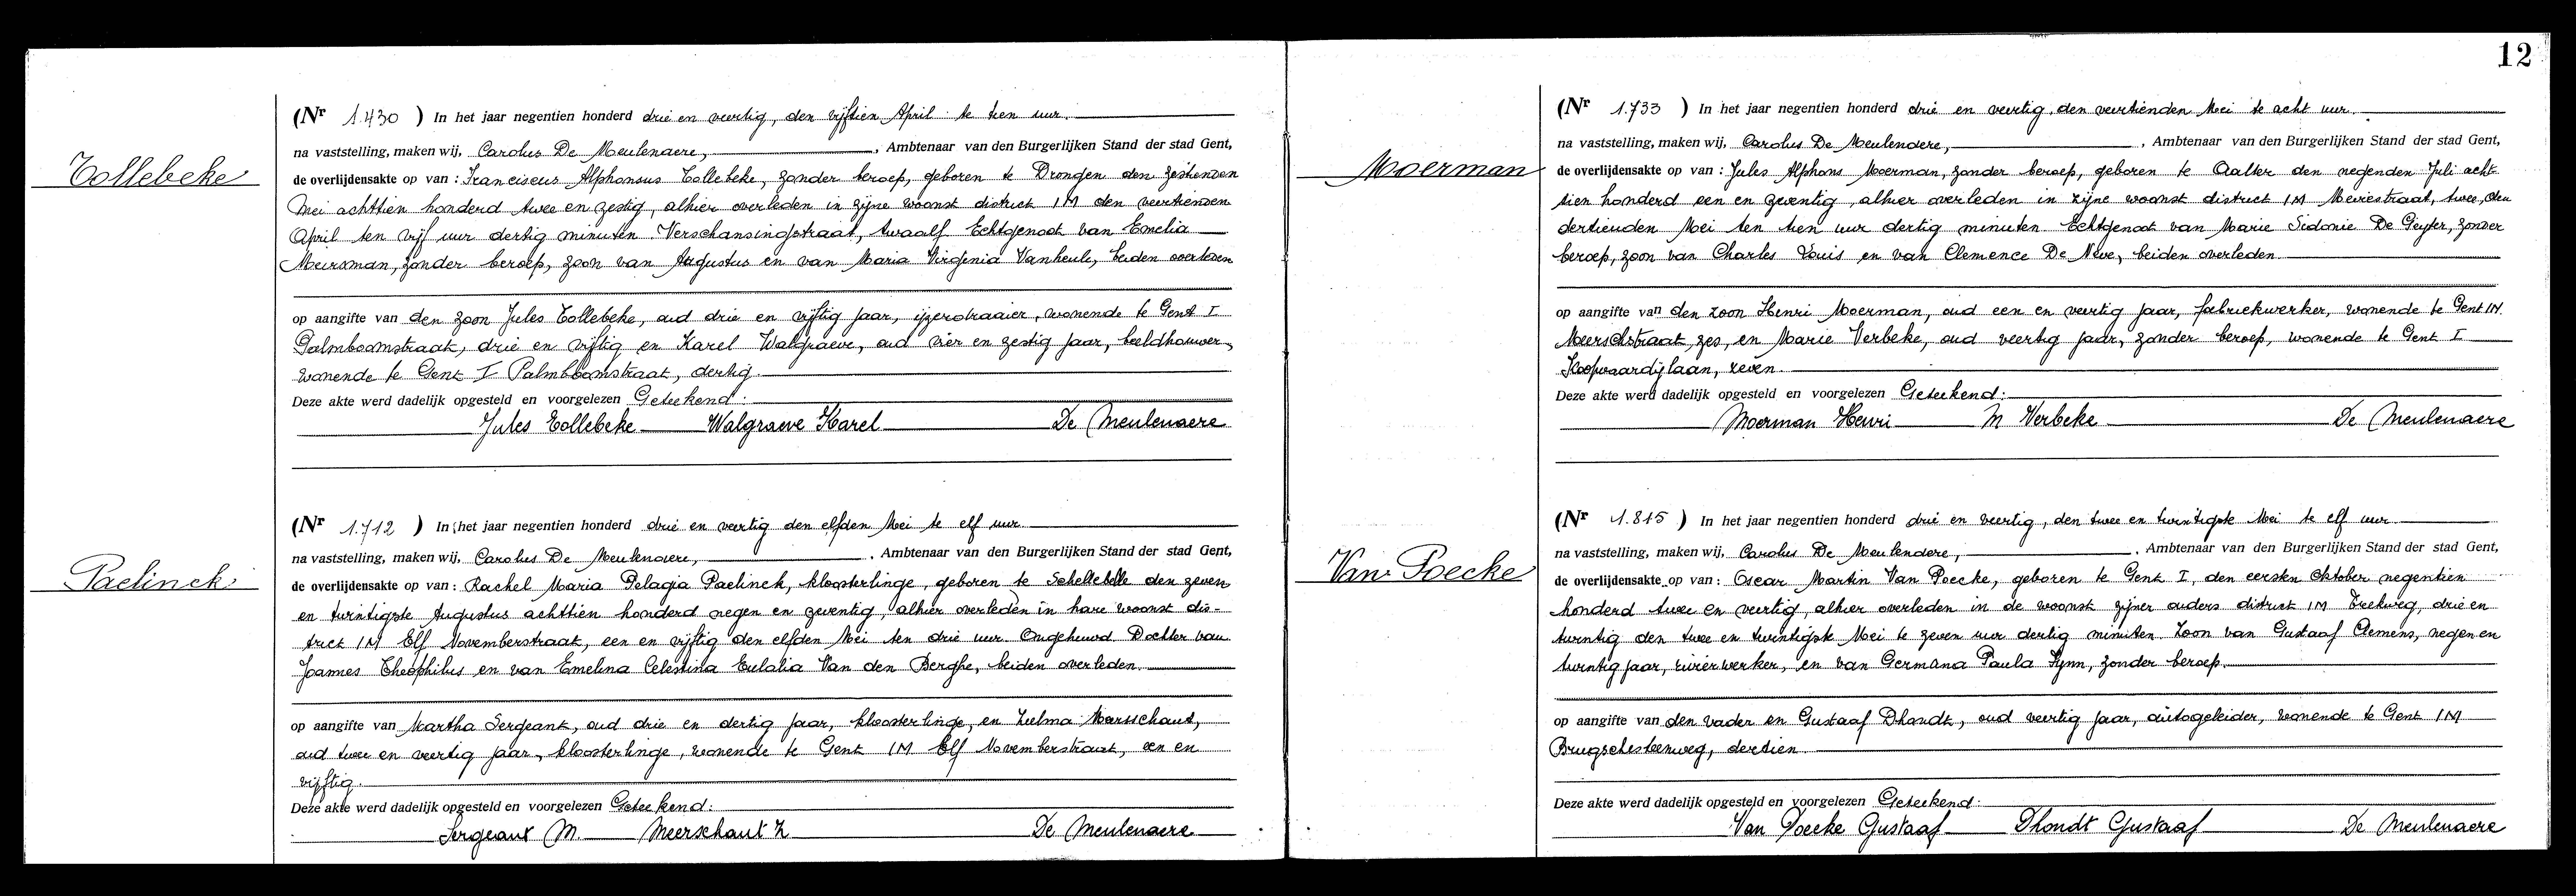 12
Tollebeke
(Nr 1.430 ) In het jaar negentien honderd drie en veertig, den vijftien April te tien uur.
na vaststelling, maken wij, Carolus De Meulenaere, , Ambtenaar van den Burgerlijken Stand der stad Gent,
de overlijdensakte op van : Franciscus Alphonsus Tollebeke, zonder beroep, geboren te Drongen den zestienden
Mei achttien honderd twee en zestig, alhier overleden in zijne woonst district IM den veertienden
April ten vijf uur dertig minuten Verschansingstraat, twaalf Echtgenoot van Emelia
Meirsman, zonder beroep, zoon van Augustus en van Maria Virginia Vanheule, beiden overleden
op aangifte van den zoon Jules Tollebeke, oud drie en vijftig jaar, ijzerdraaier, wonende te Gent I
Palmboomstraat, drie en vijftig en Karel Walgraeve, oud vier en zestig jaar, beeldhouwer,
wonende te Gent I Palmboomstraat, dertig.
Deze akte werd dadelijk opgesteld en voorgelezen Geteekend:
Jules Tollebeke Walgraeve Karel De Meulenaere
Paelinck
(Nr 1.712 ) In het jaar negentien honderd drie en veertig den elfden Mei te elf uur
na vaststelling, maken wij, Carolus De Meulenaere, , Ambtenaar van den Burgerlijken Stand der stad Gent,
de overlijdensakte op van : Rachel Maria Pelagia Paelinck, kloosterlinge, geboren te Schellebelle den zeven
en twintigste Augustus achttien honderd negen en zeventig, alhier overleden in hare woonst dis-
trict IM Elf Novemberstraat, een en vijftig den elfden Mei ten drie uur. Ongehuwd. Dochter van
Joannes Theophilus en van Emelina Celestina Eulalia Van den Berghe, beiden overleden.
op aangifte van Martha Sergeant, oud drie en dertig jaar, kloosterlinge, en Zulma Meerschaut,
oud twee en veertig jaar, kloosterlinge, wonende te Gent IM Elf Novemberstraat, een en
vijftig.
Deze akte werd dadelijk opgesteld en voorgelezen Geteekend:
Sergeant M. Meerschaut Z De Meulenaere
Moerman
(Nr 1.733 ) In het jaar negentien honderd drie en veertig, den veertienden Mei te acht uur.
na vaststelling, maken wij, Carolus De Meulenaere, , Ambtenaar van den Burgerlijken Stand der stad Gent,
de overlijdensakte op van : Jules Alphons Moerman, zonder beroep, geboren te Aalter den negenden Juli acht
tien honderd een en zeventig, alhier overleden in zijne woonst district IM Meiestraat, twee, den
dertienden Mei ten tien uur dertig minuten Echtgenoot van Marie Sidonie De Geyter, zonder
beroep, zoon van Charles Louis en van Clemence De Neve, beiden overleden.
op aangifte van den zoon Henri Moerman, oud een en veertig jaar, fabriekwerker, wonende te Gent IM
Meerschstraat, zes, en Marie Verbeke, oud veertig jaar, zonder beroep, wonende te Gent I
Koopvaardijlaan, zeven.
Deze akte werd dadelijk opgesteld en voorgelezen Geteekend:
Moerman Henri M Verbeke De Meulenaere
Van Poecke
(Nr 1.815 ) In het jaar negentien honderd drie en veertig, den twee en twintigste Mei te elf uur
na vaststelling, maken wij, Carolus De Meulenaere, , Ambtenaar van den Burgerlijken Stand der stad Gent,
de overlijdensakte op van : Oscar Martin Van Poecke, geboren te Gent I, den eersten Oktober negentien
honderd twee en veertig, alhier overleden in de woonst zijner ouders district IM Trekweg, drie en
twintig den twee en twintigste Mei te zeven uur dertig minuten. Zoon van Gustaaf Clemens, negen en
twintig jaar, rivierwerker, en van Germana Paula Hynn, zonder beroep.
op aangifte van den vader en Gustaaf Dhondt, oud veertig jaar, autogeleider, wonende te Gent IM
Brugschesteenweg, dertien.
Deze akte werd dadelijk opgesteld en voorgelezen Geteekend:
Van Poecke Gustaaf Dhondt Gustaaf De Meulenaere